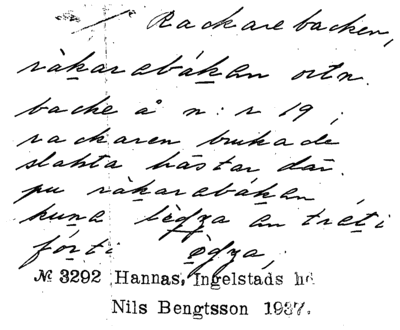 Rackarebacken,
ràkarabákan ortn.
backe å n:r 19,
rackaren brukade
slakta hästar där.
pu ràkarabákan
kuna lèdza an trati
förti ödza,
№ 3292 Hannas, Ingelstads hd
Nils Bengtsson 1937.